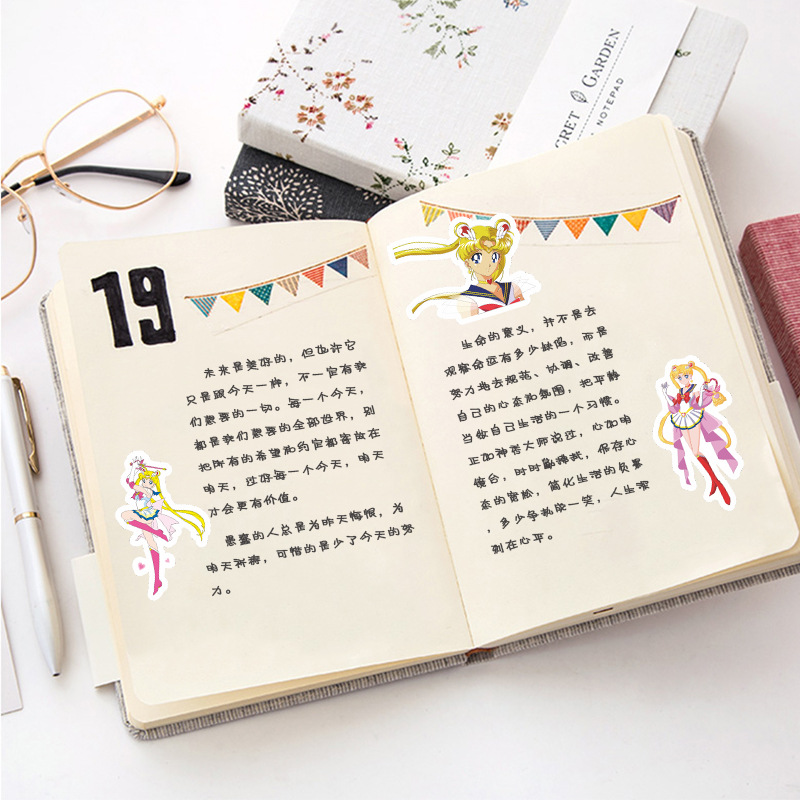 SECRET GARDEN
NOTEPAD
19
未来是美好的，但也许它
只是跟今天一样，不一定有我
们想要的一切。每一个今天，
都是我们想要的全部世界，别
把所有的希望和约定都寄放在
明天，过好每一个今天，明天
才会更有价值。
愚蠢的人总是为昨天悔恨，为
明天祈祷，可惜的是少了今天的努
力。
生命的意义，并不是去
观察命运有多少缺陷，而是
努力地去规范、协调、改善
自己的心态和氛围，把平静
当做自己生活的一个习惯。
正如神秀大师说过，心如明
镜台，时时勤拂拭，保存心
态的宽松，简化生活的负累
，多少争执但一笑，人生
刻在心平。